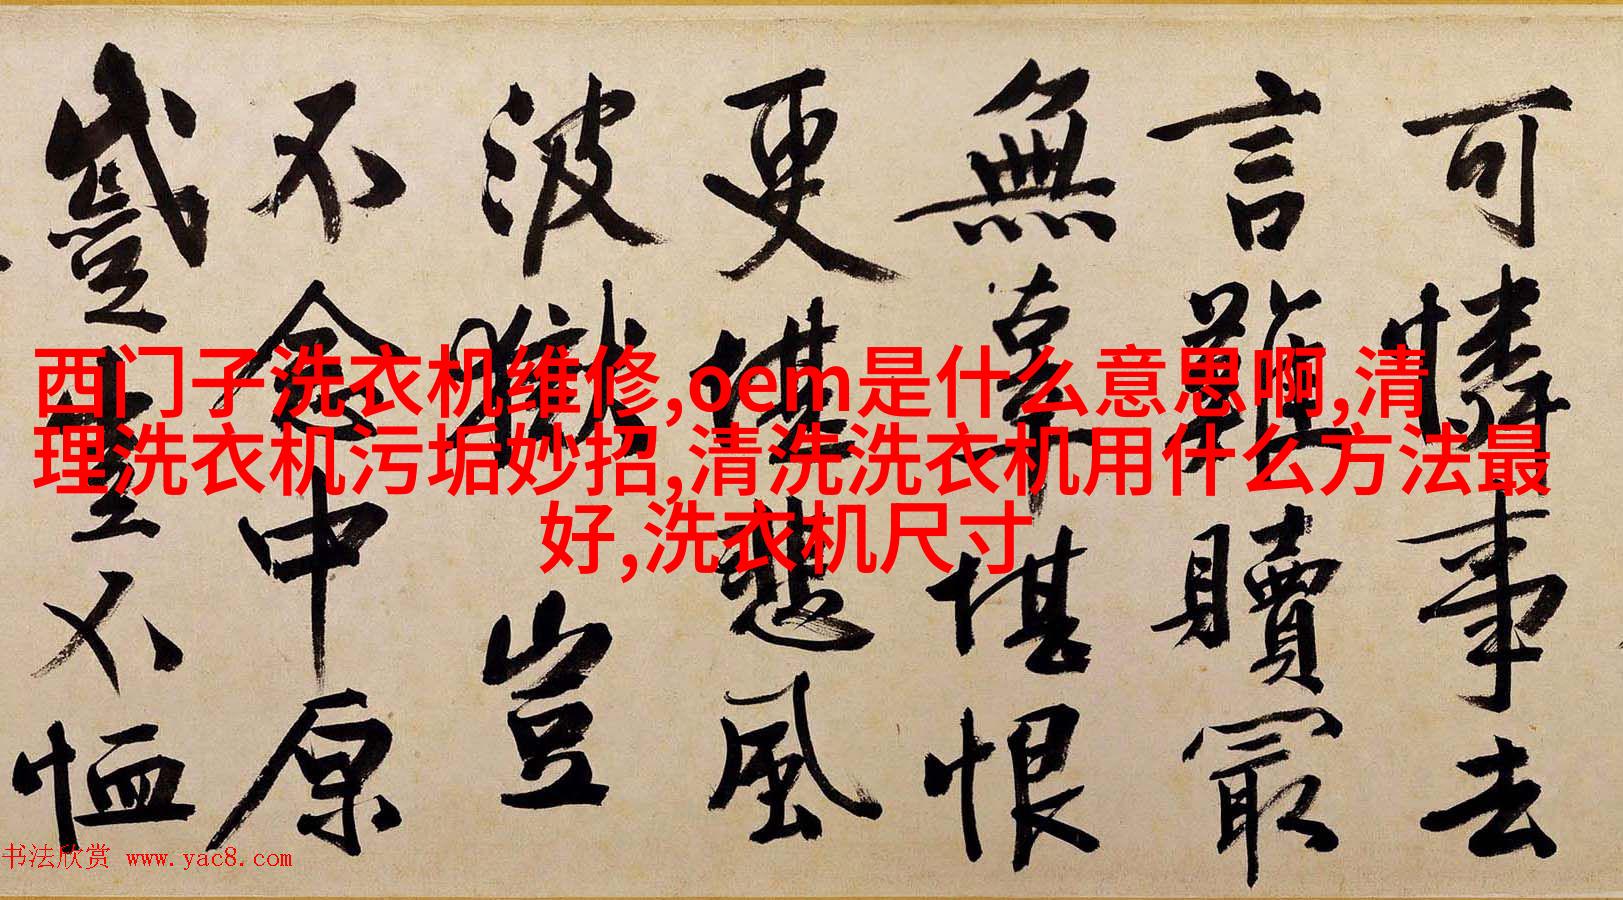 可憐事去
言難贖最
無辜堪恨
更堪悲風
波獄豈
不念中原
蹙豈不恤
西门子洗衣机维修,oem是什么意思啊,清
理洗衣机污垢妙招,清洗洗衣机用什么方法最
好,洗衣机尺寸
书法欣赏 www.yac8.com